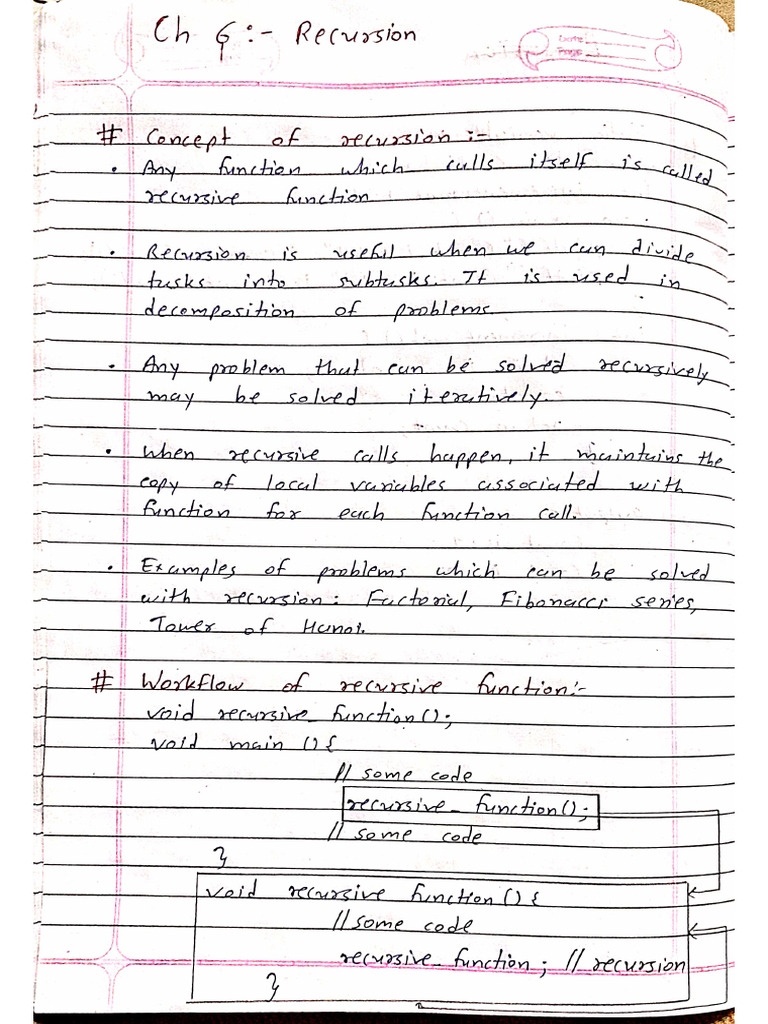 Ch 6 :- Recursion
Date:
Page:
# Concept of recursion :-
• Any function which calls itself is called
recursive function
• Recursion is useful when we can divide
tasks into subtasks. It is used in
decomposition of problems.
• Any problem that can be solved recursively
may be solved iteratively.
• When recursive calls happen, it maintains the
copy of local variables associated with
function for each function call.
• Examples of problems which can be solved
with recursion: Factorial, Fibonacci series,
Tower of Hanoi.
# Workflow of recursive function:-
void recursive_function();
void main (){
// some code
recursive_function();
// some code
}
void recursive function(){
// some code
recursive_function; // recursion
}